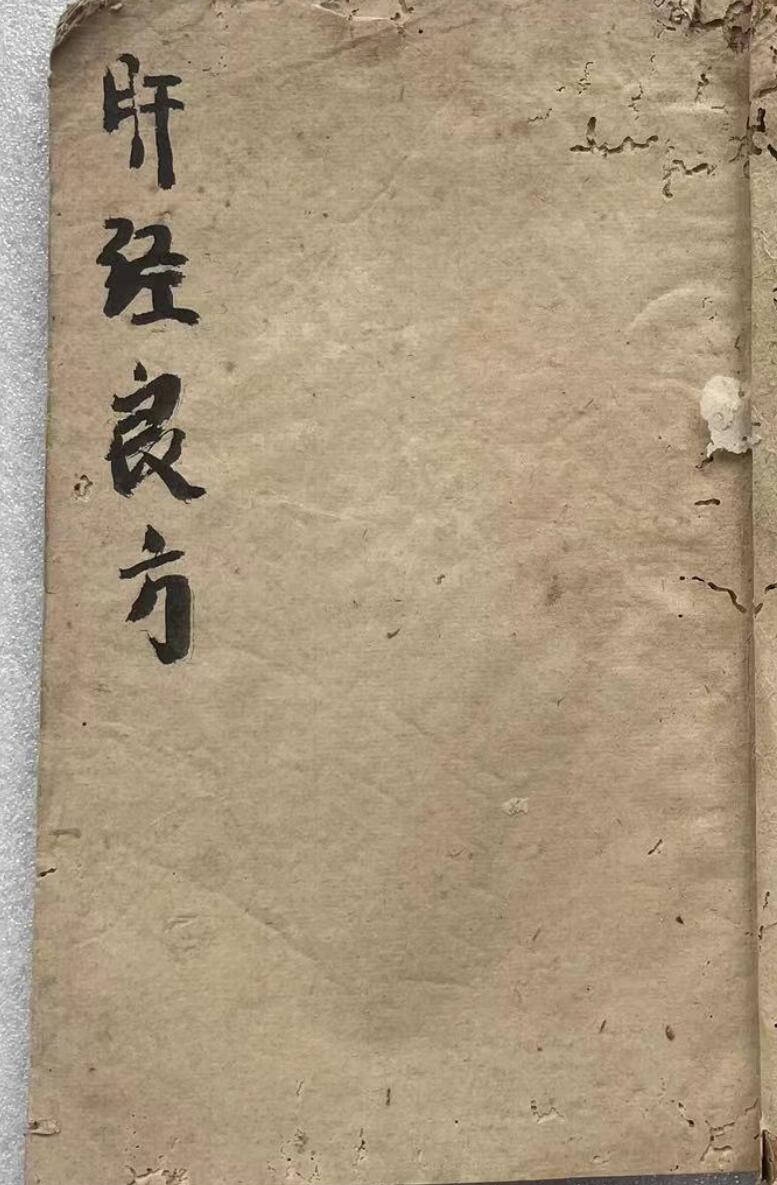 肝经良方